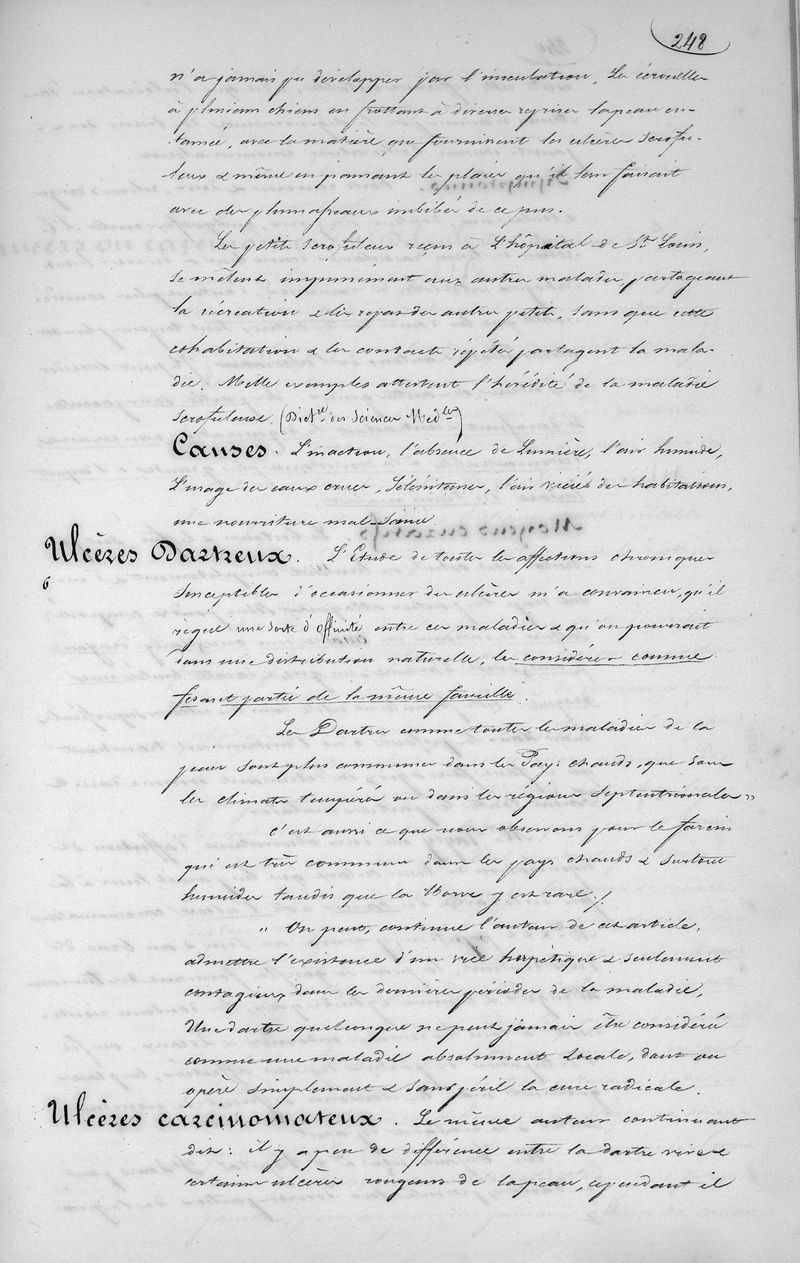 248
n'a jamais pu développer par l'inoculation, les écrouelles
à plusieurs chiens en frottant à diverses reprises la peau en-
tamée, avec la matière que fournissent les ulcères scrofu-
leux & même en pansant les plaies qu'il leur faisait
avec des plumasseaux imbibés de ce pus.
Les petits scrofuleux reçus à L'hôpital de St Louis,
se mêlent impunément aux autres malades, partageant
la récréation & les repas des autres petits, sans que cette
cohabitation & les contacts répétés partagent la mala-
die. Mille exemples attestent l'hérédité de la maladie
scrofuleuse. (Dictre des Sciences Medles)
Causes. L'inaction, l'absence de Lumière, l'air humide,
L'usage des eaux crues, Séléniteuses, l'air vicié des habitations,
une nourriture mal-saine
Ulcères Dartreux. L'Etude de toutes les affections chroniques
6
susceptibles d'occasionner des ulcères m'a convaincu, qu'il
règne une sorte d'affinité entre ces maladies & qu'on pourrait
dans une distribution naturelle, les considérer comme
fesant partie de la même famille.
Les Dartres comme toutes les maladies de la
peau sont plus communes dans les Pays chauds, que sous
les climats tempérés ou dans les régions Septentrionales "
c'est aussi ce que nous observons pour le farcin
qui est très commun dans les pays chauds & surtout
humides tandis que la Morve y est rare /.
" On peut, continue l'auteur de cet article,
admettre l'existence d'un vice herpétique & seulement
contagieux dans les dernières périodes de la maladie,
Une dartre quelconque ne peut jamais être considéré
comme une maladie absolument Locale, dont on
opère simplement & sans péril la cure radicale.
Ulcères carcinomateux. Le même auteur continuant
dit: il y a peu de différence entre la dartre vive &
certains ulcères rongeurs de la peau, cependant il